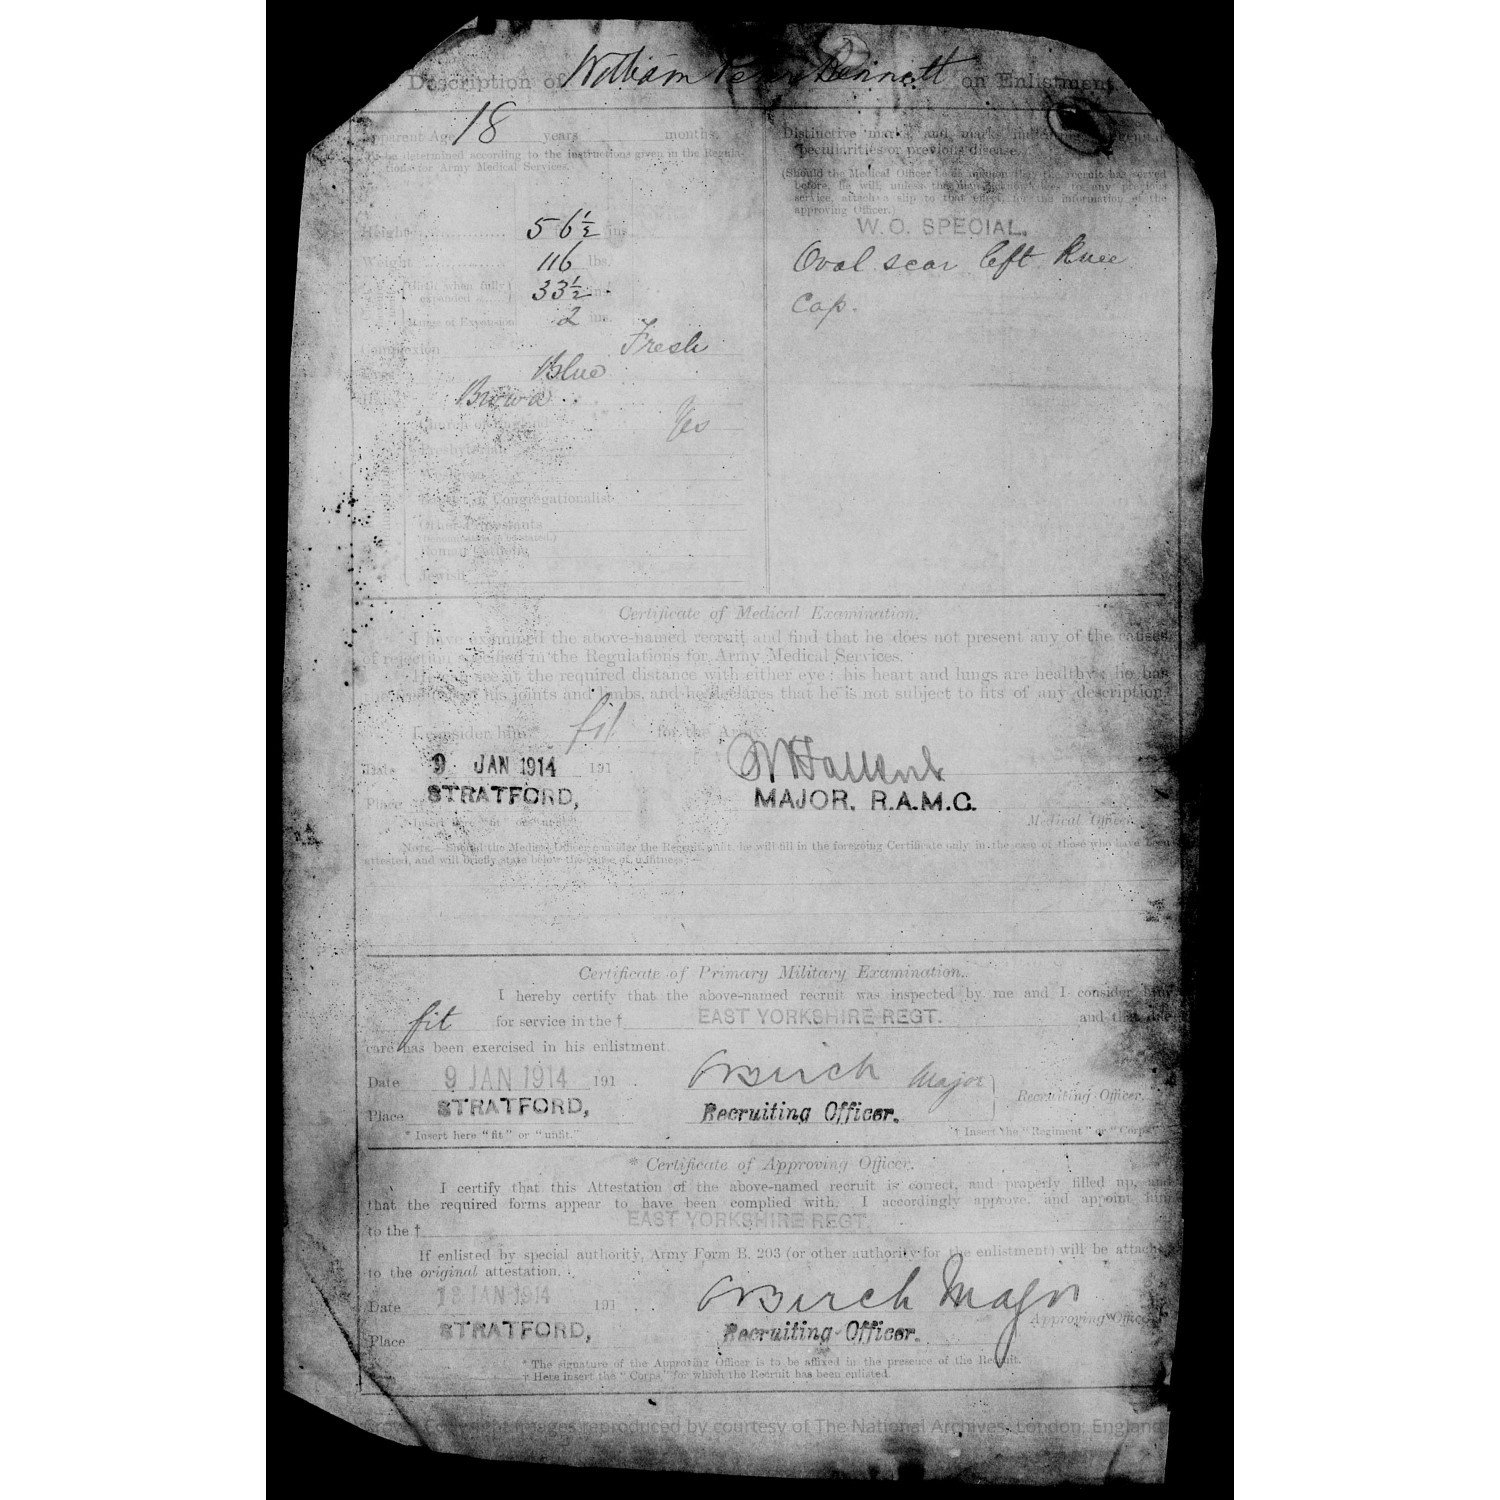 Description of William Bennett on Enlistment.
Apparent Age 18 years months.
(To be determined according to the instructions given in the Regulations for Army Medical Services.)
Distinctive marks, and marks
peculiarities or previous disease.
(Should the Medical Officer be of opinion that the recruit has served
before, he will, unless the man acknowledges to any previous
service, attach a slip to that effect, for the information of the
approving Officer.)
W.O. SPECIAL.
Height 5 6½ ins.
Weight 116 lbs.
Girth when fully expanded 33½ ins.
Range of Expansion 2 ins.
Oval scar left knee
cap.
Complexion Fresh
Blue
Brown
Church of England Yes
Presbyterian
Baptist or Congregationalist
Other Protestants
(Denomination to be stated.)
Roman Catholic
Jewish
Certificate of Medical Examination.
I have examined the above-named recruit and find that he does not present any of the causes
of rejection specified in the Regulations for Army Medical Services.
He can see at the required distance with either eye; his heart and lungs are healthy; he has
his joints and limbs, and he declares that he is not subject to fits of any description.
I consider him* fit for the Army.
Date 9 JAN 1914 191
Place STRATFORD,
MAJOR, R.A.M.C.
Medical Officer.
* Insert here "fit" or "unfit."
NOTE.—Should the Medical Officer consider the Recruit unfit, he will fill in the foregoing Certificate only in the case of those who have been
attested, and will briefly state below the cause of unfitness:—
Certificate of Primary Military Examination.
I hereby certify that the above-named recruit was inspected by me and I consider him
fit for service in the † EAST YORKSHIRE REGT. and that due
care has been exercised in his enlistment.
Date 9 JAN 1914 191 .
Birch Major
Recruiting Officer.
Place STRATFORD,
Recruiting Officer.
* Insert here "fit" or "unfit."
† Insert the "Regiment" or "Corps"
* Certificate of Approving Officer.
I certify that this Attestation of the above-named recruit is correct, and properly filled up, and
that the required forms appear to have been complied with. I accordingly approve, and appoint him
to the † EAST YORKSHIRE REGT.
If enlisted by special authority, Army Form B. 203 (or other authority for the enlistment) will be attached
to the original attestation.
Date JAN 1914 191 .
Birch Major
Approving Officer.
Place STRATFORD,
Recruiting Officer.
* The signature of the Approving Officer is to be affixed in the presence of the Recruit.
† Here insert the "Corps" for which the Recruit has been enlisted.
Copyright images reproduced by courtesy of The National Archives, London, England